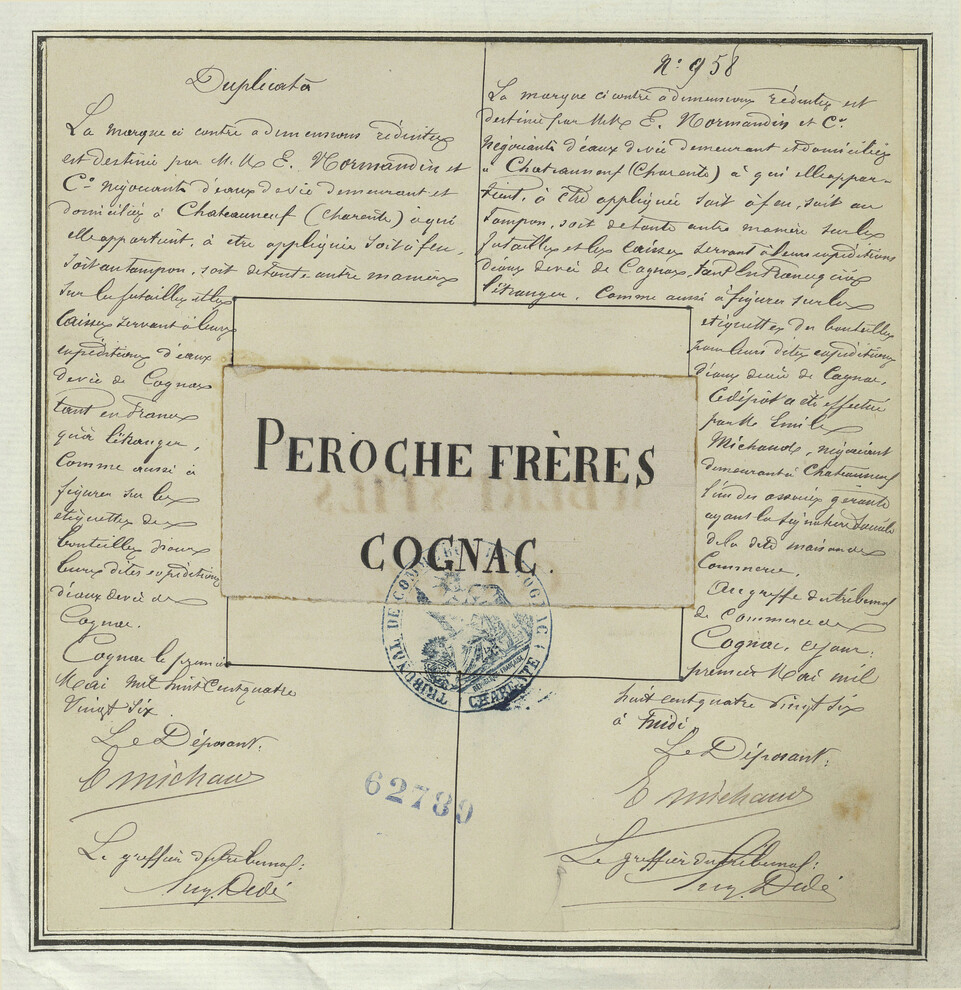 Duplicata
La marque ci contre à dimensions réduites
est destinée par M.M. E. Normandin et
Cie négociants d'eaux de vie demeurant et
domiciliés à Chateauneuf (Charente) à qui
elle appartient, à être appliquée soit à feu,
soit au tampon, soit de toute autre manière
sur les futailles et les
caisses servant à leurs
expéditions d'eaux
de vie de Cognac
tant en France
qu'à l'étranger,
Comme aussi à
figurer sur les
étiquettes des
bouteilles pour
leurs dites expéditions
d'eaux de vie de
Cognac.
Cognac le premier
Mai mil huit cent quatre
Vingt Six.
Le Déposant:
E Michaud
Le greffier du tribunal:
Dedé
N° 958
La marque ci contre à dimensions réduites est
destinée par M.M. E. Normandin et Cie
Négociants d'eaux de vie demeurant et domiciliés
à Chateauneuf (Charente) à qui elle appar-
tient, à être appliquée soit à feu, soit au
tampon, soit de toute autre manière sur les
futailles et les caisses servant à leurs expéditions
d'eaux de vie de Cognac, tant en France qu'à
l'étranger. Comme aussi à figurer sur les
étiquettes des bouteilles
pour leurs dites expéditions
d'eaux de vie de Cognac.
Ce dépôt a été effectué
par M. Emile
Michaud, négociant
demeurant à Chateauneuf
l'un des associés gérants
ayant la signature sociale
de la dite maison de
Commerce.
Au greffe du tribunal
de Commerce de
Cognac, ce jour
premier Mai mil
huit cent quatre vingt six
à midi.
Le Déposant:
E Michaud
Le greffier du tribunal:
Dedé
PEROCHE FRÈRES
COGNAC.
TRIBUNAL DE COMMERCE DE COGNAC
RÉPUBLIQUE FRANÇAISE
(CHARENTE)
62789